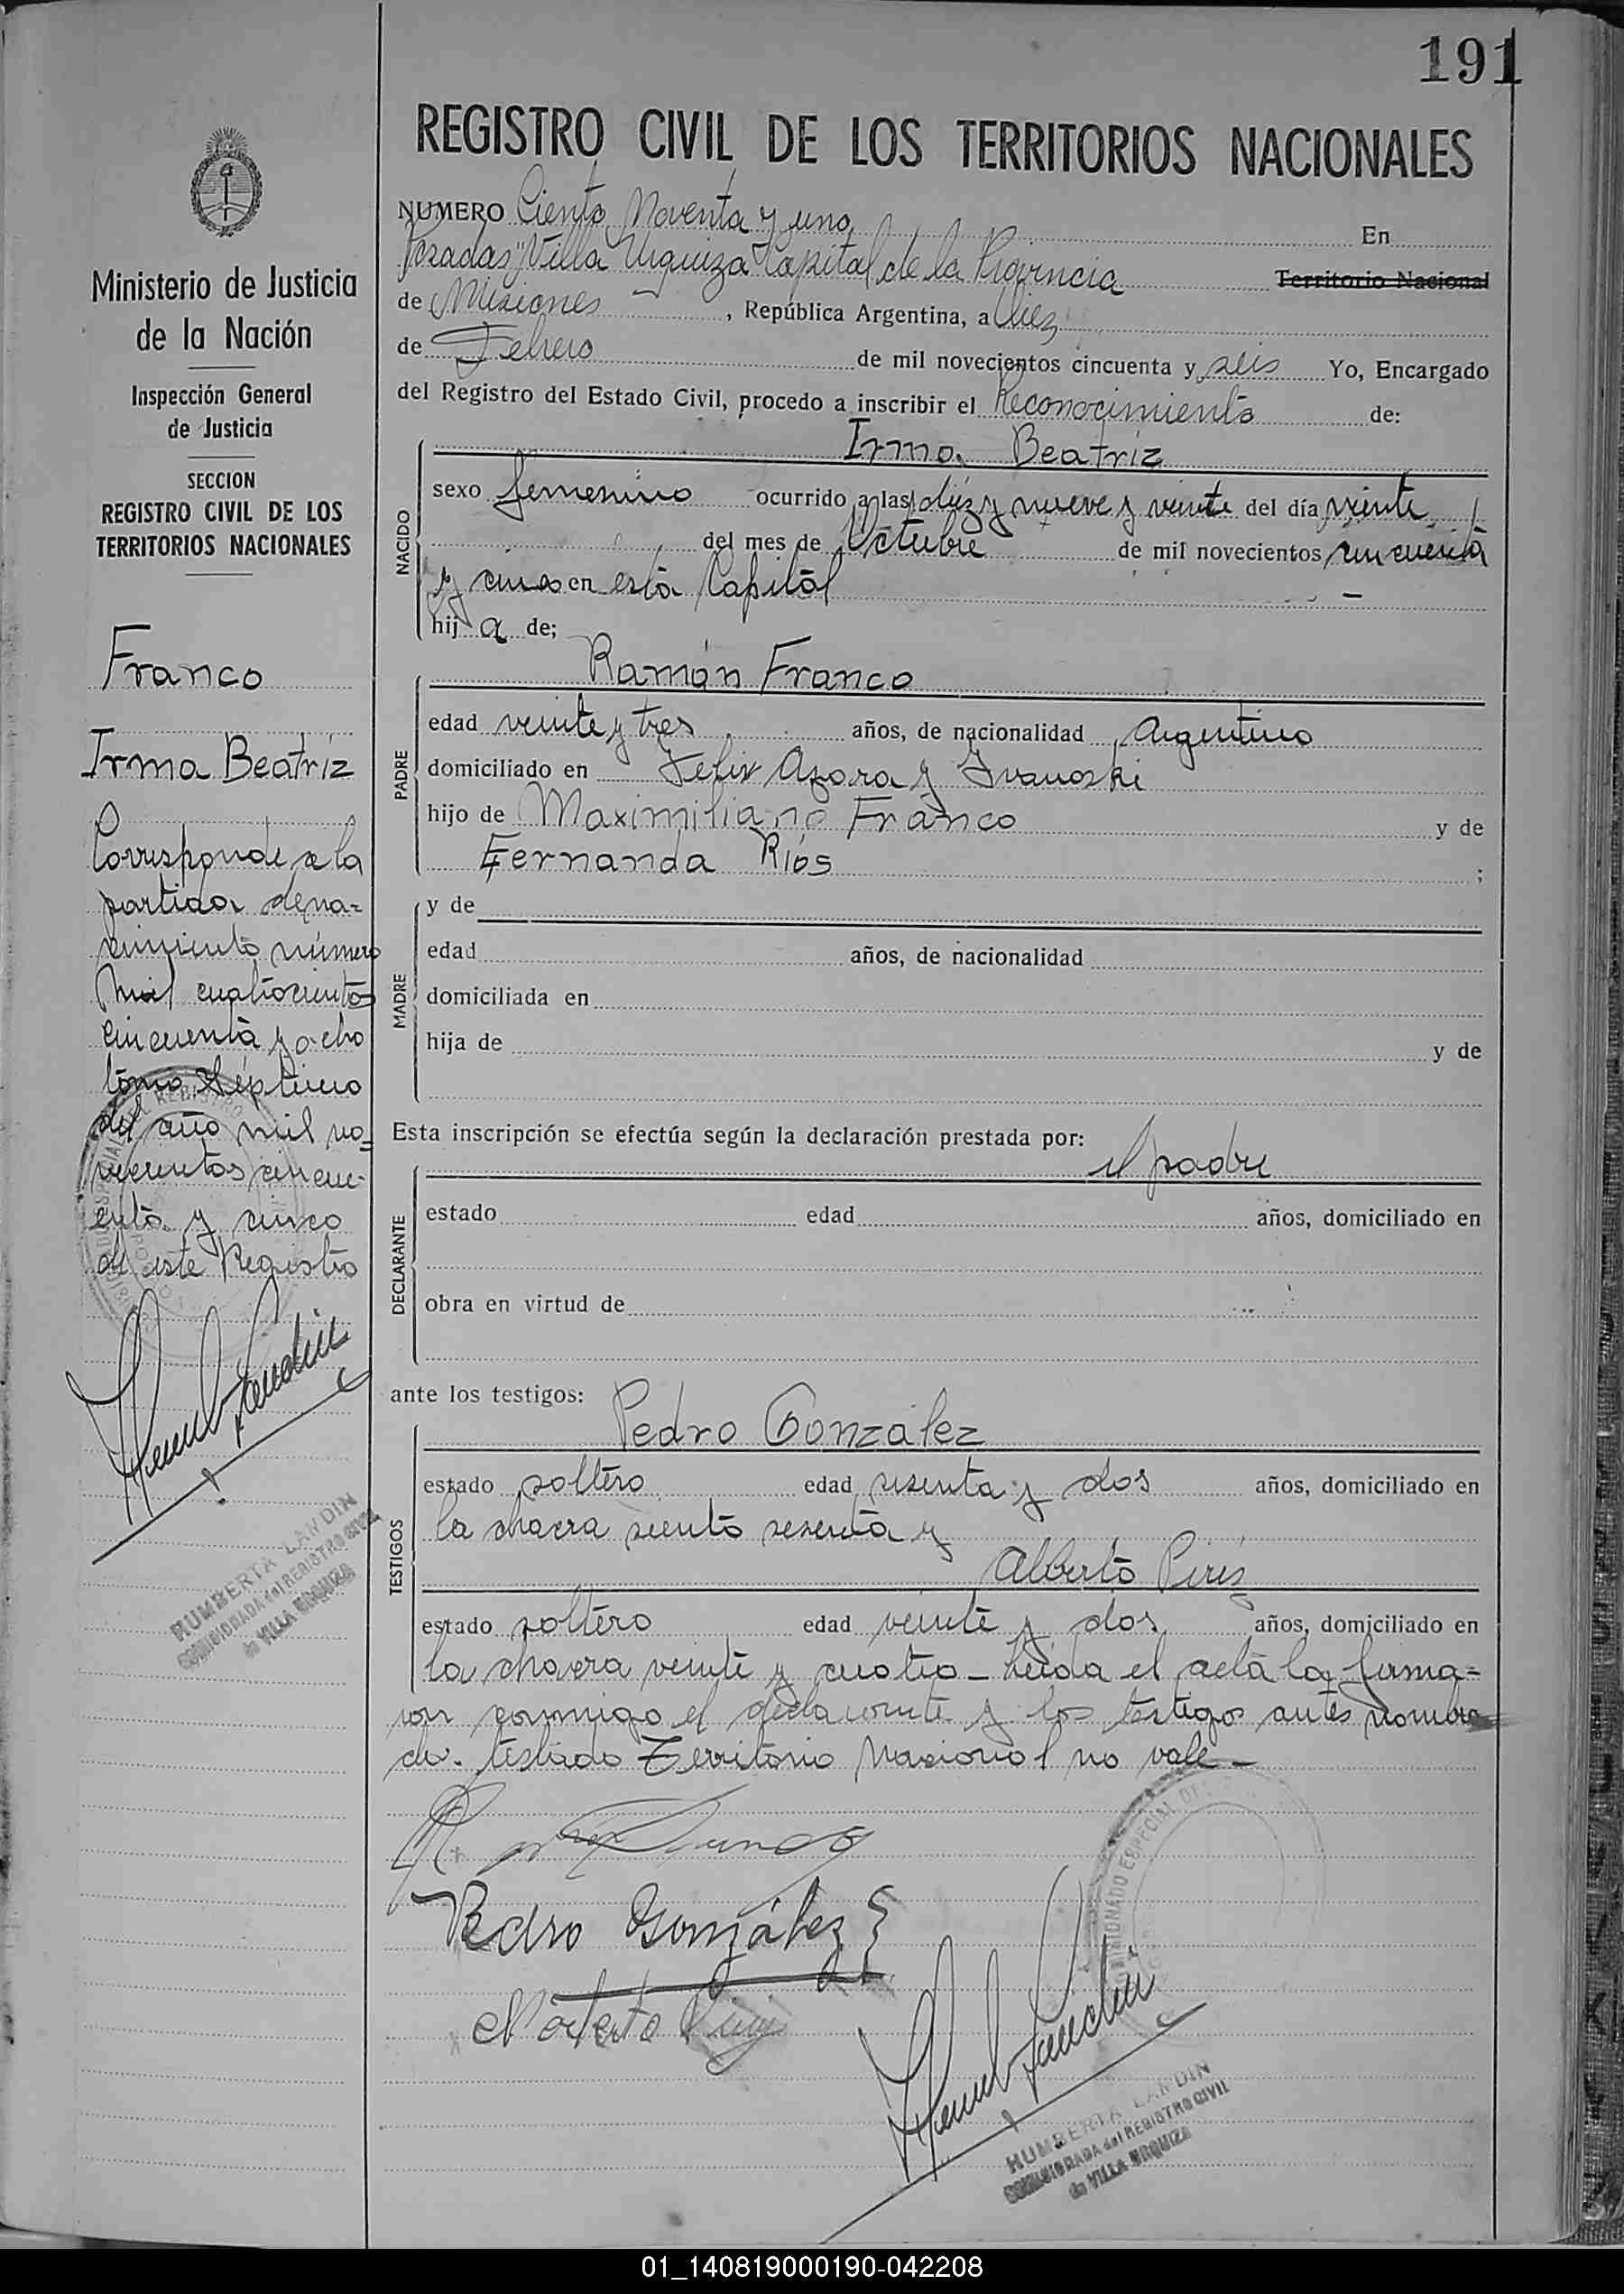 191
REGISTRO CIVIL DE LOS TERRITORIOS NACIONALES
NUMERO Ciento Noventa y uno En
Posadas "Villa Urquiza" Capital de la Provincia Territorio Nacional
de Misiones, República Argentina, a diez
de Febrero de mil novecientos cincuenta y seis Yo, Encargado
del Registro del Estado Civil, procedo a inscribir el Reconocimiento de:
NACIDO
Irma Beatriz
sexo femenino ocurrido a las diez y nueve y veinte del día veinte
del mes de Octubre de mil novecientos cincuenta
y cinco en esta Capital
hija de;
PADRE
Ramón Franco
edad veinte y tres años, de nacionalidad Argentino
domiciliado en Felix Azara y
hijo de Maximiliano Franco y de
Fernanda Ríos ;
MADRE
y de
edad años, de nacionalidad
domiciliada en
hija de y de
Esta inscripción se efectúa según la declaración prestada por:
el padre
DECLARANTE
estado edad años, domiciliado en
obra en virtud de
ante los testigos:
Pedro González
TESTIGOS
estado soltero edad sesenta y dos años, domiciliado en
la chacra ciento sesenta y
Alberto Piris
estado soltero edad veinte y dos años, domiciliado en
la chacra veinte y cuatro _ Leída el acta la firma=
ron conmigo el declarante y los testigos antes nombra
do. testado Territorio Nacional no vale _
Pedro González
HUMBERTA LANDIN
COMISIONADA del REGISTRO CIVIL
de VILLA URQUIZA
Ministerio de Justicia
de la Nación
Inspección General
de Justicia
SECCION
REGISTRO CIVIL DE LOS
TERRITORIOS NACIONALES
Franco
Irma Beatriz
Corresponde a la
partida de na=
cimiento número
mil cuatrocientos
cincuenta y ocho
tomo séptimo
del año mil no=
vecientos cincu-
enta y cinco
de este Registro
HUMBERTA LANDIN
COMISIONADA del REGISTRO CIVIL
de VILLA URQUIZA
01_140819000190-042208